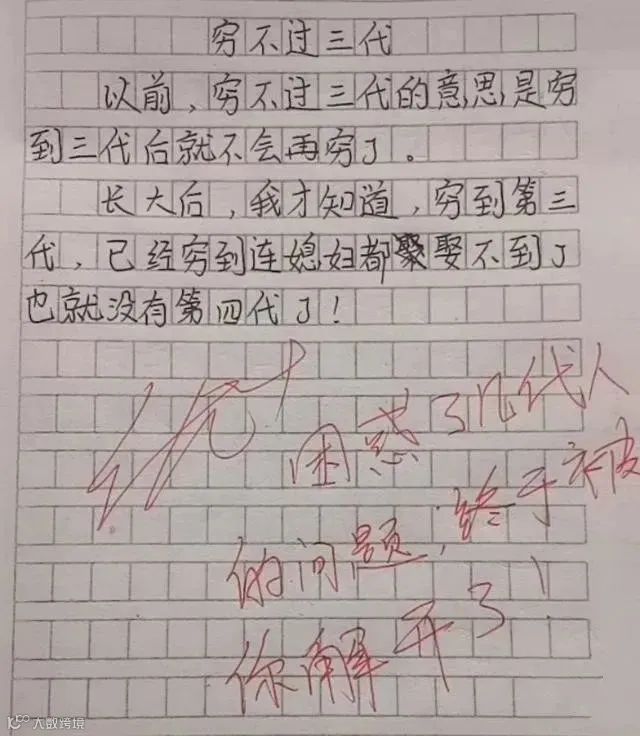 穷不过三代
以前，穷不过三代的意思是穷
到三代后就不会再穷了。
长大后，我才知道，穷到第三
代，已经穷到连媳妇都娶不到了
也就没有第四代了！
优+
困惑了几代人
的问题，终于被
你解开了！
大数跨境